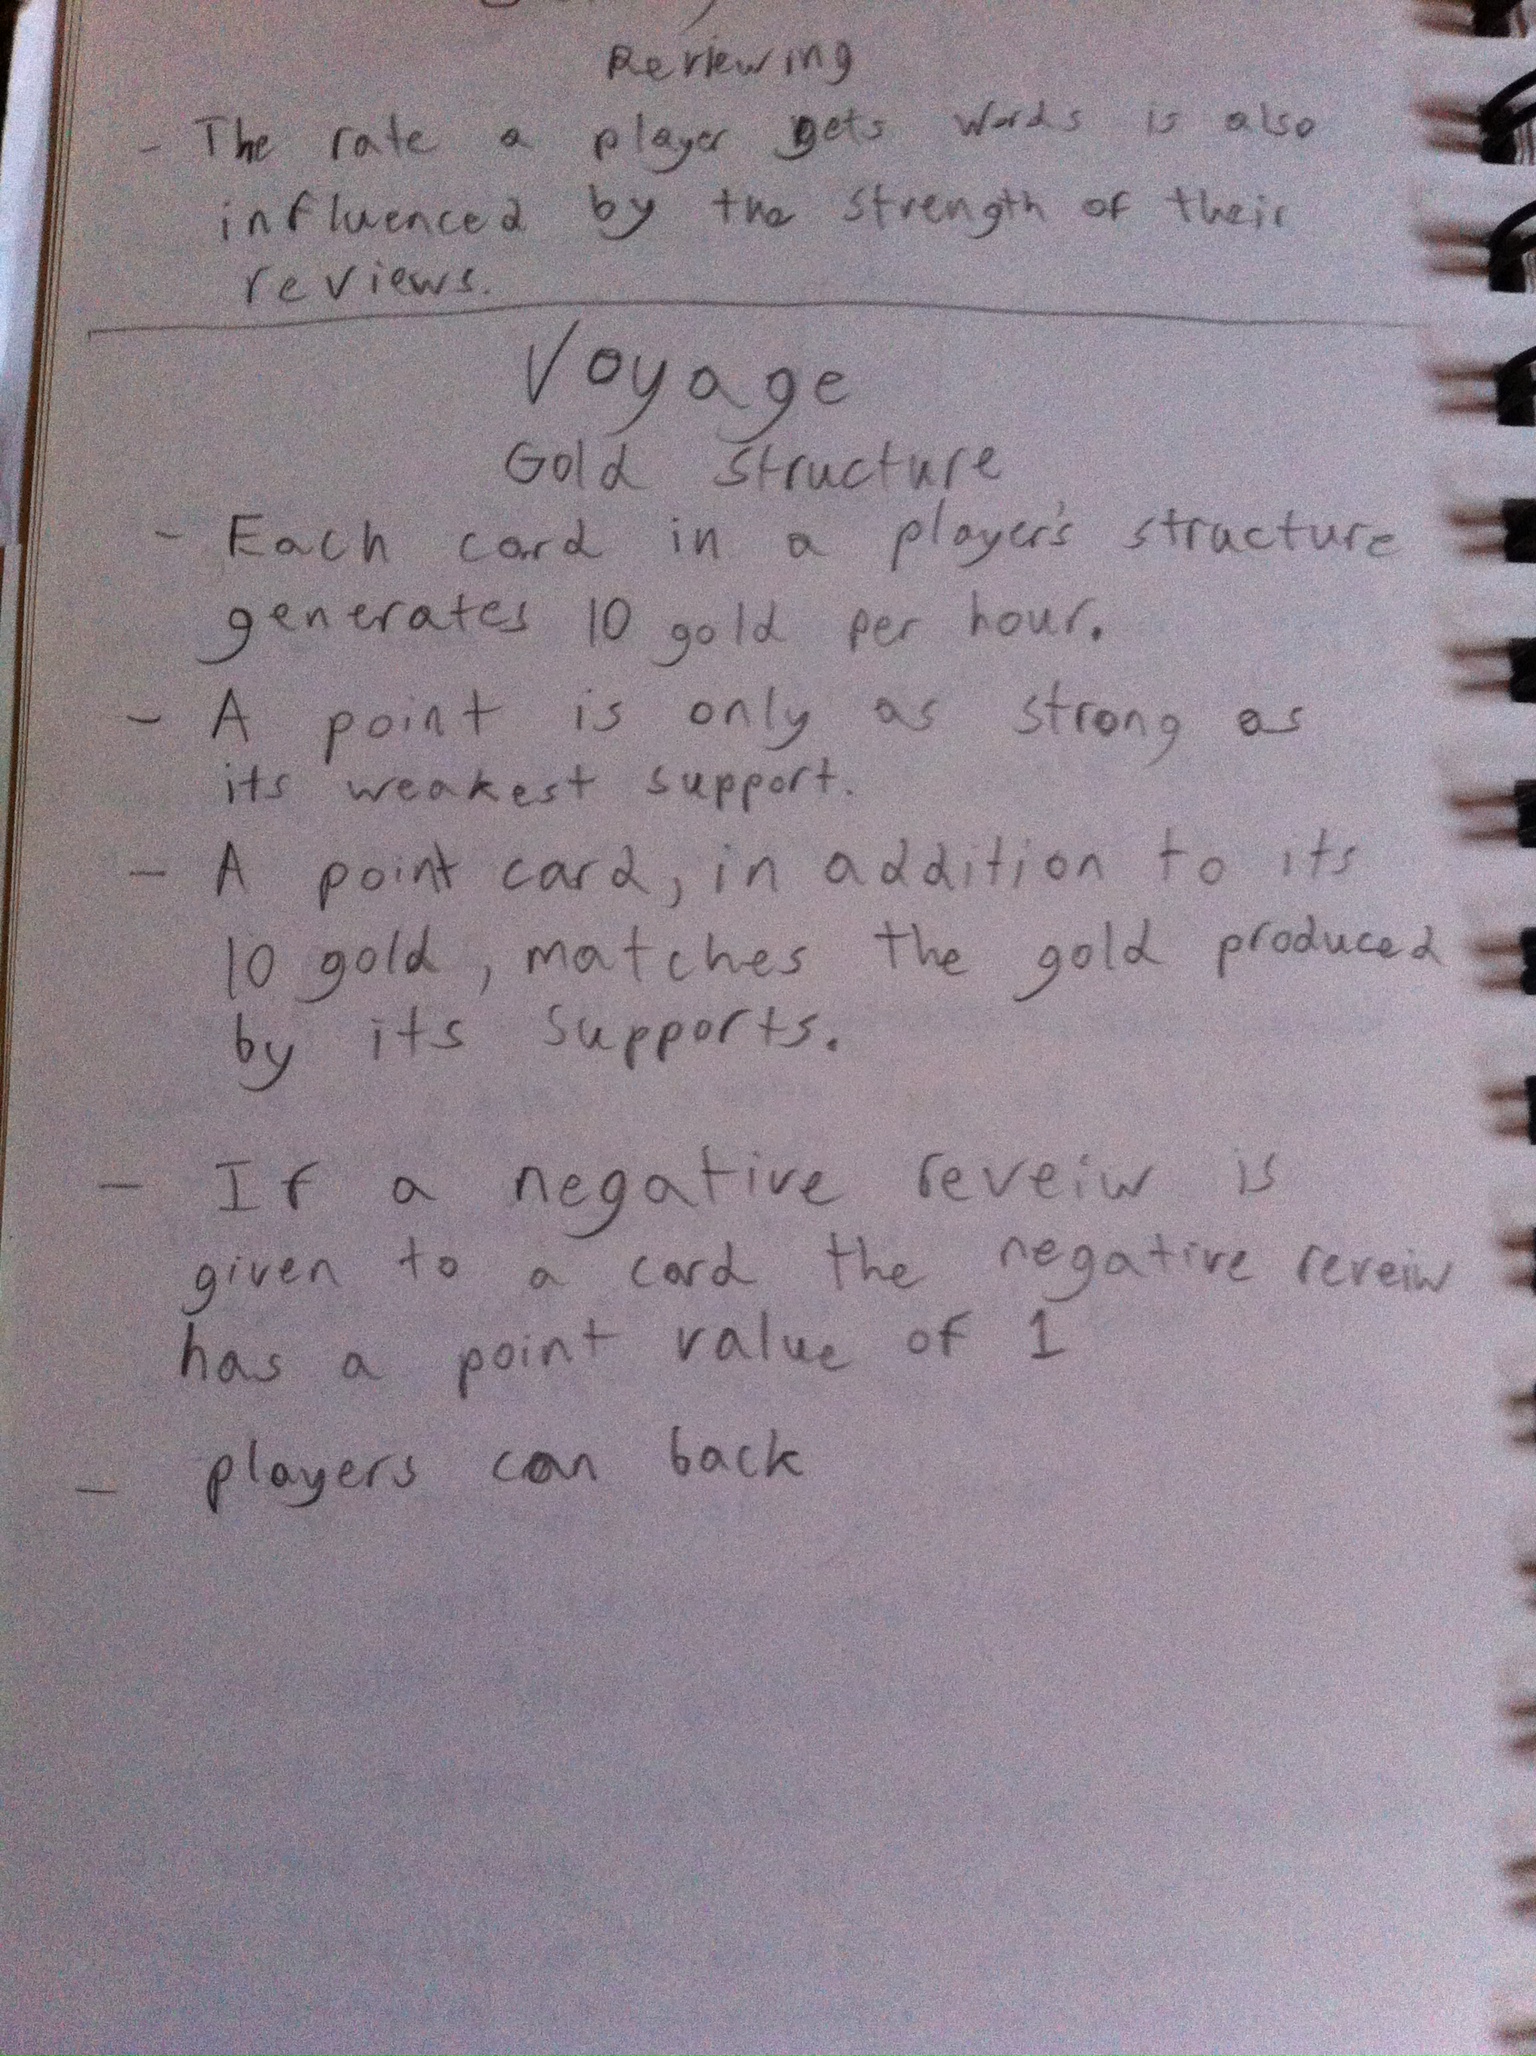 Reviewing
- The rate a player gets words is also
influenced by the strength of their
reviews.
Voyage
Gold structure
- Each card in a player's structure
generates 10 gold per hour.
- A point is only as strong as
its weakest support.
- A point card, in addition to its
10 gold, matches the gold produced
by its supports.
- If a negative reveiw is
given to a card the negative reveiw
has a point value of 1
- players can back